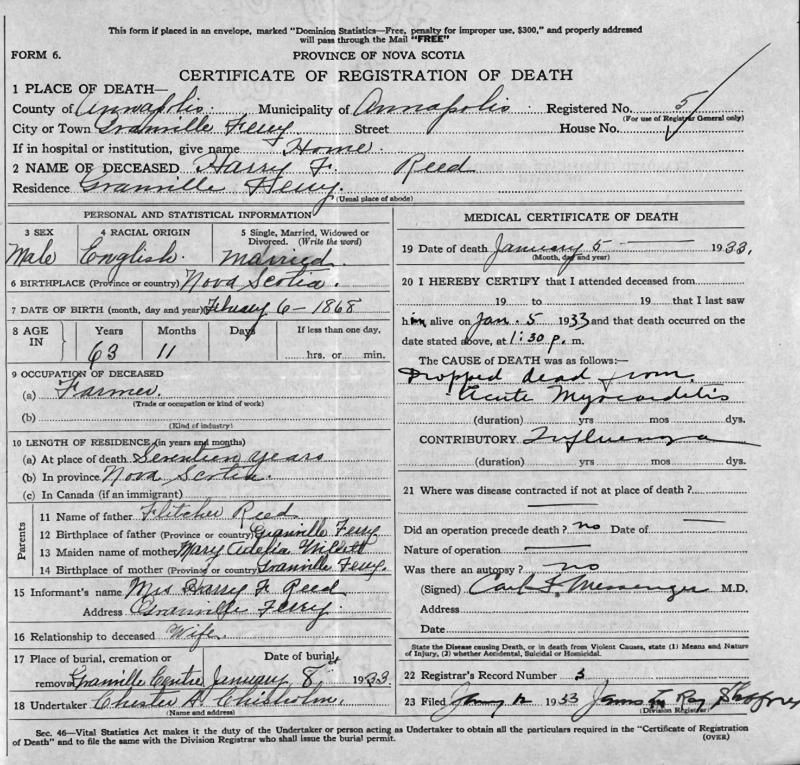 This form if placed in an envelope, marked "Dominion Statistics—Free, penalty for improper use, $300," and properly addressed
will pass through the Mail "FREE"
FORM 6.
PROVINCE OF NOVA SCOTIA
CERTIFICATE OF REGISTRATION OF DEATH
1 PLACE OF DEATH—
County of Annapolis. Municipality of Annapolis. Registered No. 5
(For use of Registrar General only)
City or Town Granville Ferry Street House No.
If in hospital or institution, give name Home.
2 NAME OF DECEASED Harry F. Reed
Residence Granville Ferry.
(Usual place of abode)
PERSONAL AND STATISTICAL INFORMATION
3 SEX 4 RACIAL ORIGIN 5 Single, Married, Widowed or
Divorced. (Write the word)
Male English. Married.
6 BIRTHPLACE (Province or country) Nova Scotia.
7 DATE OF BIRTH (month, day and year) February 6 - 1868
8 AGE IN Years Months Days If less than one day,
63 11 hrs. or min.
9 OCCUPATION OF DECEASED
(a) Farmer.
(Trade or occupation or kind of work)
(b)
(Kind of industry)
10 LENGTH OF RESIDENCE (in years and months)
(a) At place of death Seventeen years
(b) In province Nova Scotia.
(c) In Canada (if an immigrant)
Parents
11 Name of father Fletcher Reed
12 Birthplace of father (Province or country) Granville Ferry
13 Maiden name of mother Mary Adelia
14 Birthplace of mother (Province or country) Granville Ferry.
15 Informant's name Mrs Harry F. Reed
Address Granville Ferry.
16 Relationship to deceased Wife.
17 Place of burial, cremation or Date of burial
removal Granville Centre January 8 1933.
18 Undertaker Chester A. Chisholm.
(Name and address)
MEDICAL CERTIFICATE OF DEATH
19 Date of death January 5 1933.
(Month, day and year)
20 I HEREBY CERTIFY that I attended deceased from
19 to 19 that I last saw
him alive on Jan. 5 1933 and that death occurred on the
date stated above, at 1:30 p. m.
The CAUSE OF DEATH was as follows:—
Dropped dead from
Acute Myocarditis
(duration) yrs mos dys.
CONTRIBUTORY Influenza
(duration) yrs mos dys.
21 Where was disease contracted if not at place of death?
Did an operation precede death? no Date of
Nature of operation
Was there an autopsy? no
(Signed) Carl K. Messenger M.D.
Address
Date
State the Disease causing Death, or in death from Violent Causes, state (1) Means and Nature
of Injury, (2) whether Accidental, Suicidal or Homicidal.
22 Registrar's Record Number 3
23 Filed 1933 Ray
(Division Registrar)
Sec. 46—Vital Statistics Act makes it the duty of the Undertaker or person acting as Undertaker to obtain all the particulars required in the "Certificate of Registration
of Death" and to file the same with the Division Registrar who shall issue the burial permit. (OVER)